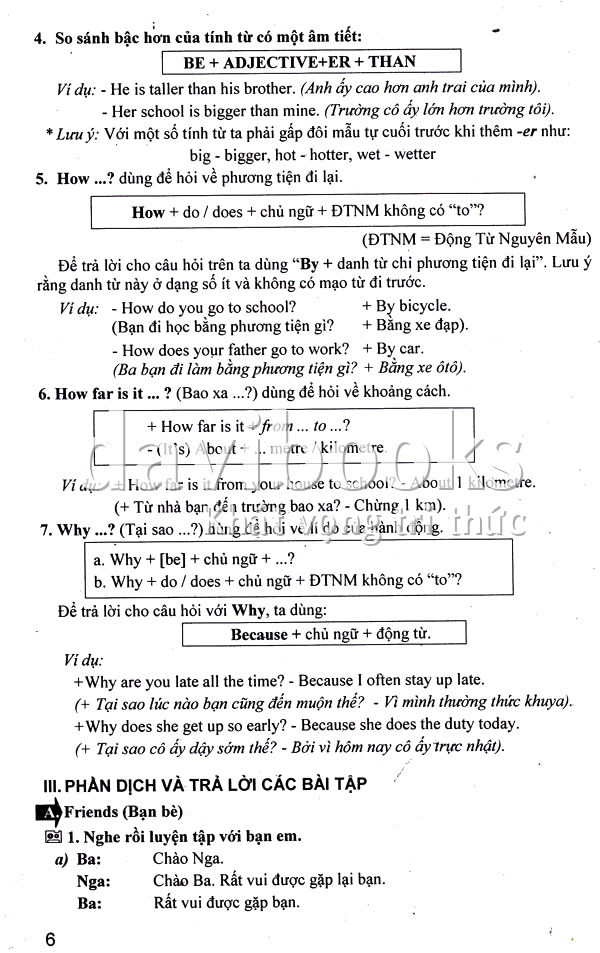 4. So sánh bậc hơn của tính từ có một âm tiết:
BE + ADJECTIVE+ER + THAN
Ví dụ: - He is taller than his brother. (Anh ấy cao hơn anh trai của mình).
- Her school is bigger than mine. (Trường cô ấy lớn hơn trường tôi).
* Lưu ý: Với một số tính từ ta phải gấp đôi mẫu tự cuối trước khi thêm -er như:
big - bigger, hot - hotter, wet - wetter
5. How ...? dùng để hỏi về phương tiện đi lại.
How + do / does + chủ ngữ + ĐTNM không có “to”?
(ĐTNM = Động Từ Nguyên Mẫu)
Để trả lời cho câu hỏi trên ta dùng “By + danh từ chỉ phương tiện đi lại”. Lưu ý
rằng danh từ này ở dạng số ít và không có mạo từ đi trước.
Ví dụ: - How do you go to school? + By bicycle.
(Bạn đi học bằng phương tiện gì? + Bằng xe đạp).
- How does your father go to work? + By car.
(Ba bạn đi làm bằng phương tiện gì? + Bằng xe ôtô).
6. How far is it ... ? (Bao xa ...?) dùng để hỏi về khoảng cách.
+ How far is it + from ... to ...?
- (It’s) About + ... metre / kilometre.
davibooks
Ví dụ: + How far is it from your house to school? - About 1 kilometre.
(+ Từ nhà bạn đến trường bao xa? - Chừng 1 km).
khát vọng tri thức
7. Why ...? (Tại sao ...?) dùng để hỏi về lí do của hành động.
a. Why + [be] + chủ ngữ + ...?
b. Why + do / does + chủ ngữ + ĐTNM không có “to”?
Để trả lời cho câu hỏi với Why, ta dùng:
Because + chủ ngữ + động từ.
Ví dụ:
+Why are you late all the time? - Because I often stay up late.
(+ Tại sao lúc nào bạn cũng đến muộn thế? - Vì mình thường thức khuya).
+Why does she get up so early? - Because she does the duty today.
(+ Tại sao cô ấy dậy sớm thế? - Bởi vì hôm nay cô ấy trực nhật).
III. PHẦN DỊCH VÀ TRẢ LỜI CÁC BÀI TẬP
A Friends (Bạn bè)
1. Nghe rồi luyện tập với bạn em.
a) Ba: Chào Nga.
Nga: Chào Ba. Rất vui được gặp lại bạn.
Ba: Rất vui được gặp bạn.
6